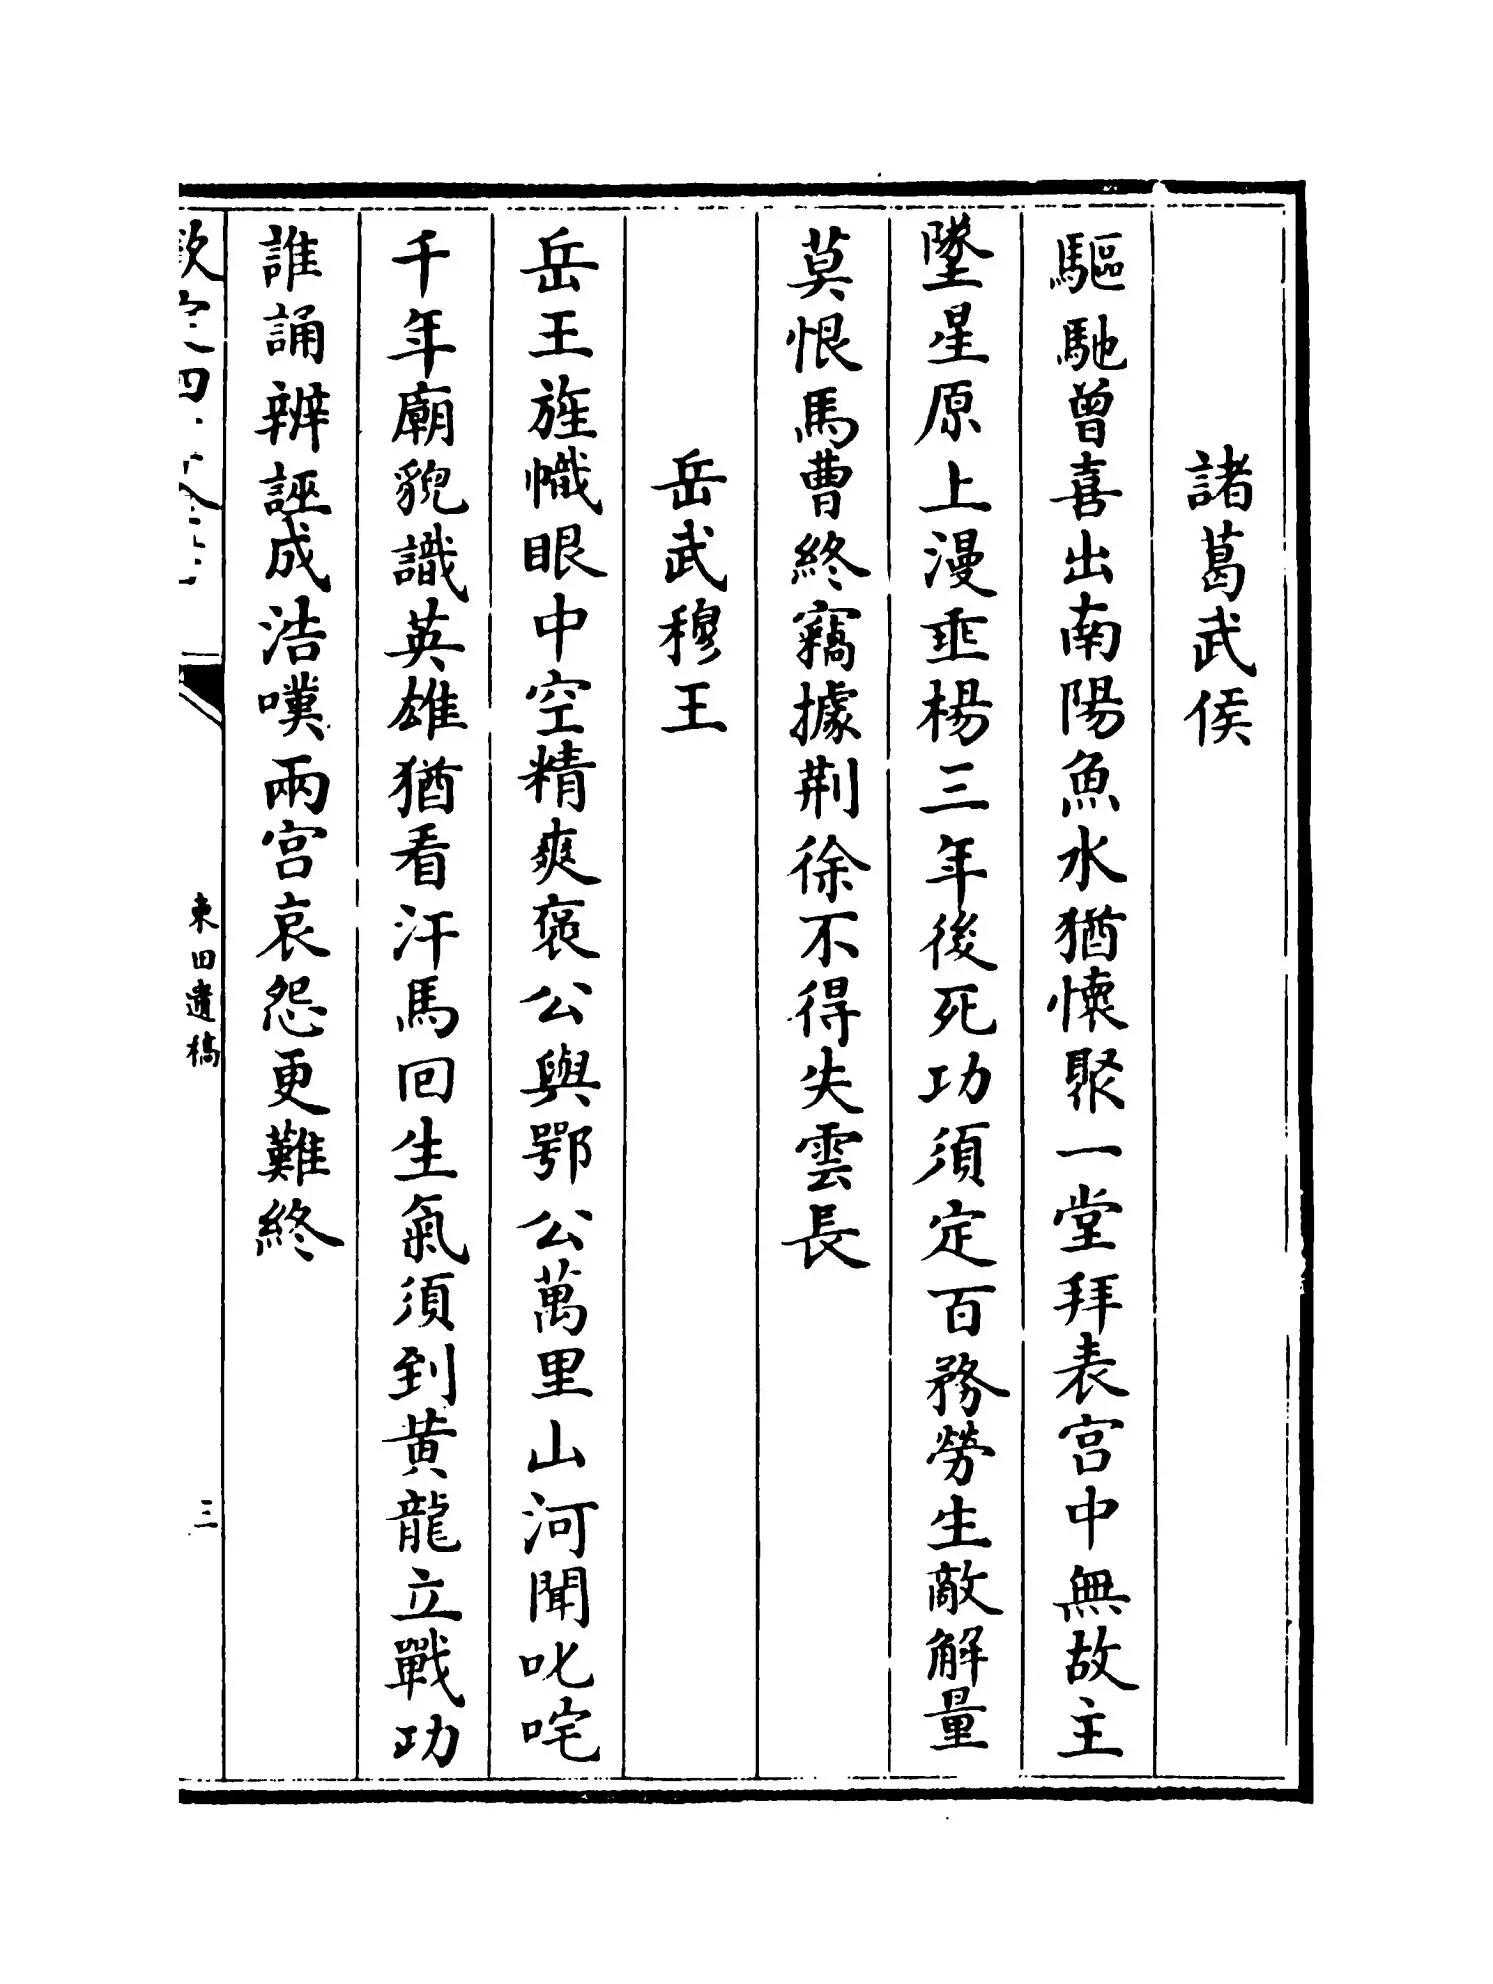 諸葛武侯
驅馳曾喜出南陽魚水猶懷聚一堂拜表宫中無故主
墜星原上漫垂楊三年後死功須定百務勞生敵解量
莫恨馬曹終竊據荆徐不得失雲長
岳武穆王
岳王旌幟眼中空精爽褒公與鄂公萬里山河聞叱咤
千年廟貌識英雄猶看汗馬回生氣須到黄龍立戰功
誰誦辨誣成浩嘆兩宫哀怨更難終
東田遺稿
三